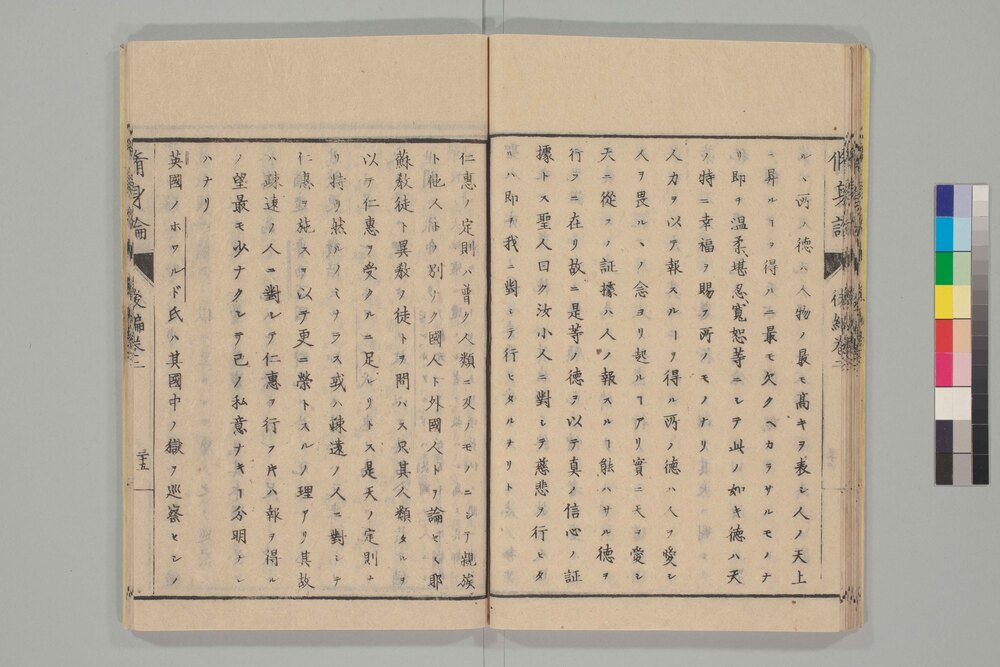 ルヽ所ノ徳ハ人物ノ最モ高キヲ表シ人ノ天上
ニ昇ルヿヲ得ルハニ最モ欠クヘカラサルモノナ
リ即チ温柔堪忍寛恕等ニシテ此ノ如キ徳ハ天
ノ特ニ幸福ヲ賜フ所ノモノナリ
人力ヲ以テ報スルヿヲ得ル所ノ徳ハ人ヲ愛シ
人ヲ畏ルヽノ念ヨリ起ルヿアリ實ニ天ヲ愛シ
天ニ從フノ証據ハ人ノ報スルヿ能ハサル徳ヲ
行フニ在リ故ニ是等ノ徳ヲ以テ真ノ信心ノ証
據トス聖人曰ク汝小人ニ對シテ慈悲ヲ行ヒタ
ルハ即チ我ニ對シテ行ヒタルナリト
仁惠ノ定則ハ普ク人類ニ及フモノニシテ親族
ト他人トノ別リク國人ト外國人トヲ論セス耶
蘇教徒ト異教ノ徒トヲ問ハス只其人類タルヲ
以テ仁惠ヲ受クルニ足レリトス是天ノ定則ナ
リ特リ然ルノミナラス或ハ疎遠ノ人ニ對シテ
仁惠ヲ施スヲ以テ更ニ榮トスルノ理アリ其故
ハ疎遠ノ人ニ對シテ仁惠ヲ行フ片ハ報ヲ得ル
ノ望最モ少ナクシテ己ノ私意ナキヿ分明ナレ
ハナリ
英國ノホワルド氏ハ其國中ノ獄ヲ巡察セシノ
脩身論
後編卷二
三十五